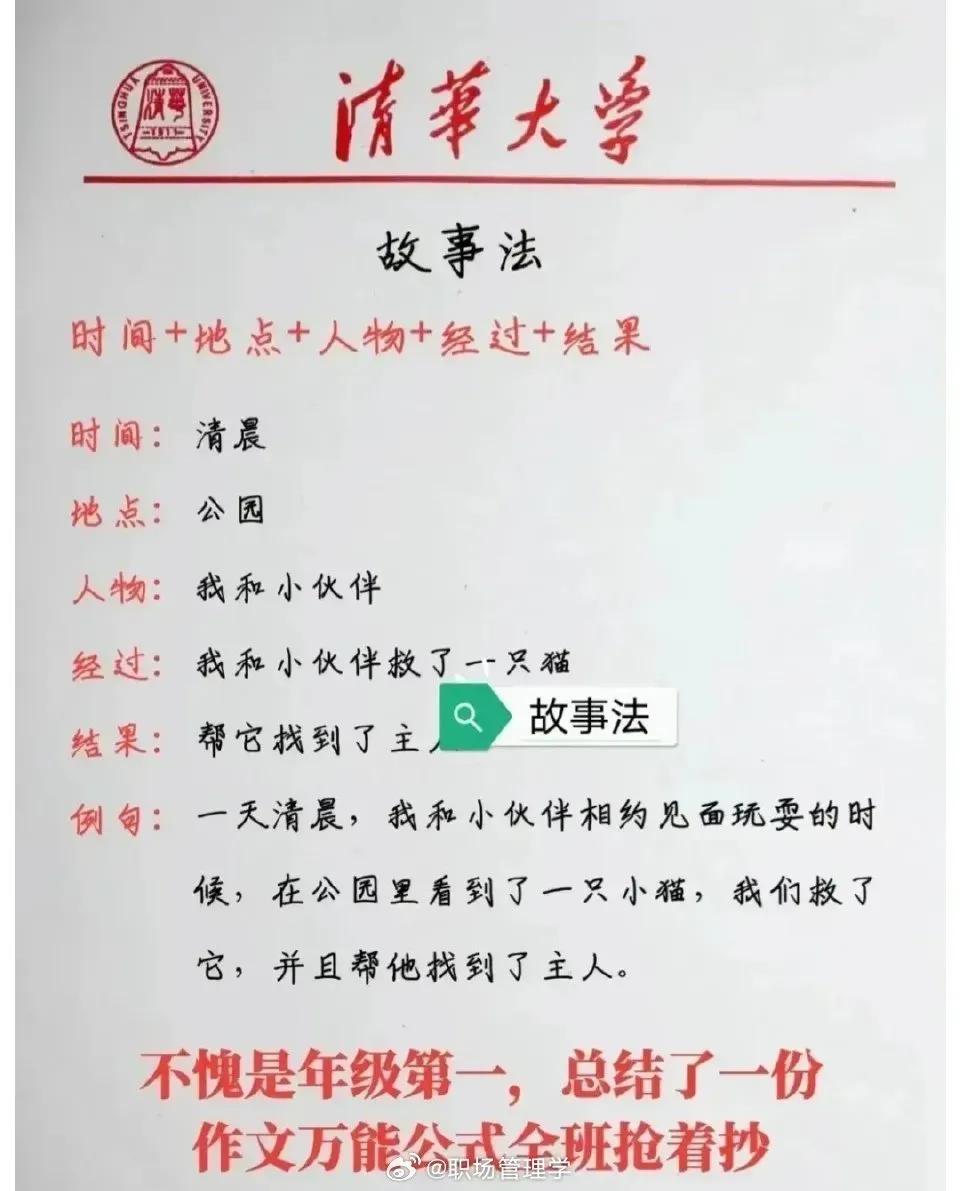 TSINGHUA UNIVERSITY
清華
1911
清華大学
故事法
时间+地点+人物+经过+结果
时间：清晨
地点：公园
人物：我和小伙伴
经过：我和小伙伴救了一只猫
结果：帮它找到了主人
故事法
例句：一天清晨，我和小伙伴相约见面玩耍的时
候，在公园里看到了一只小猫，我们救了
它，并且帮他找到了主人。
不愧是年级第一，总结了一份
作文万能公式全班抢着抄
@职场管理学